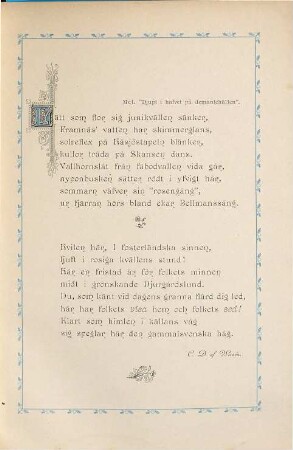 Mel. "Djupt i hafvet på demantehällen".
Lätt som flor sig junikvällen sänker,
Framnäs' vatten har skimmerglans,
solreflex på Håsjöstapeln blänker,
kullor tråda på Skansen dans.
Vallhornslåt från fäbodvallen vida går,
nyponbusken sätter rödt i yfvigt hår,
sommarn väfver sin "rosengång",
ur fjärran hörs bland ekar Bellmanssång.
Hvilen här, I fosterländska sinnen,
ljuft i rosiga kvällens stund!
Här en fristad är för folkets minnen
midt i grönskande Djurgårdslund.
Du, som känt vid dagens granna flärd dig led,
här har folkets vård hem och folkets sed!
Klart som himlen i källans våg
sig speglar här den gammalsvenska håg.
C. D. af Wirsén.